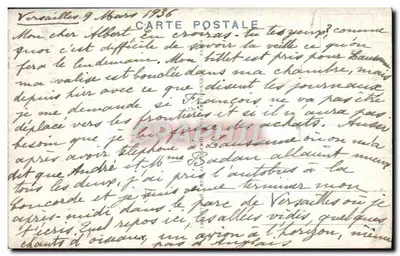 Versailles 9 Mars 1936
CARTE POSTALE
Mon cher Albert, En croiras-tu tes yeux? comme
quoi c'est difficile de savoir la veille ce qu'on
fera le lendemain. Mon billet est pris pour Lausanne
ma valise est bouclée dans ma chambre, mais
depuis hier avec ce que disent les journaux
je me demande si François ne va pas être
déplacé vers les frontières et si il n'aura pas
besoin que je lui achats. Aussi
après avoir téléphoné à Lausanne où on m'a
dit que André et Mme Badan allaient mieux
tous les deux, j'ai pris l'autobus à la
Concorde et je suis venue terminer mon
après-midi dans le parc de Versailles où je
t'écris. Quel repos ici, les allées vides, quelques
chants d'oiseaux, un avion à l'horizon, même
pas d'Anglais